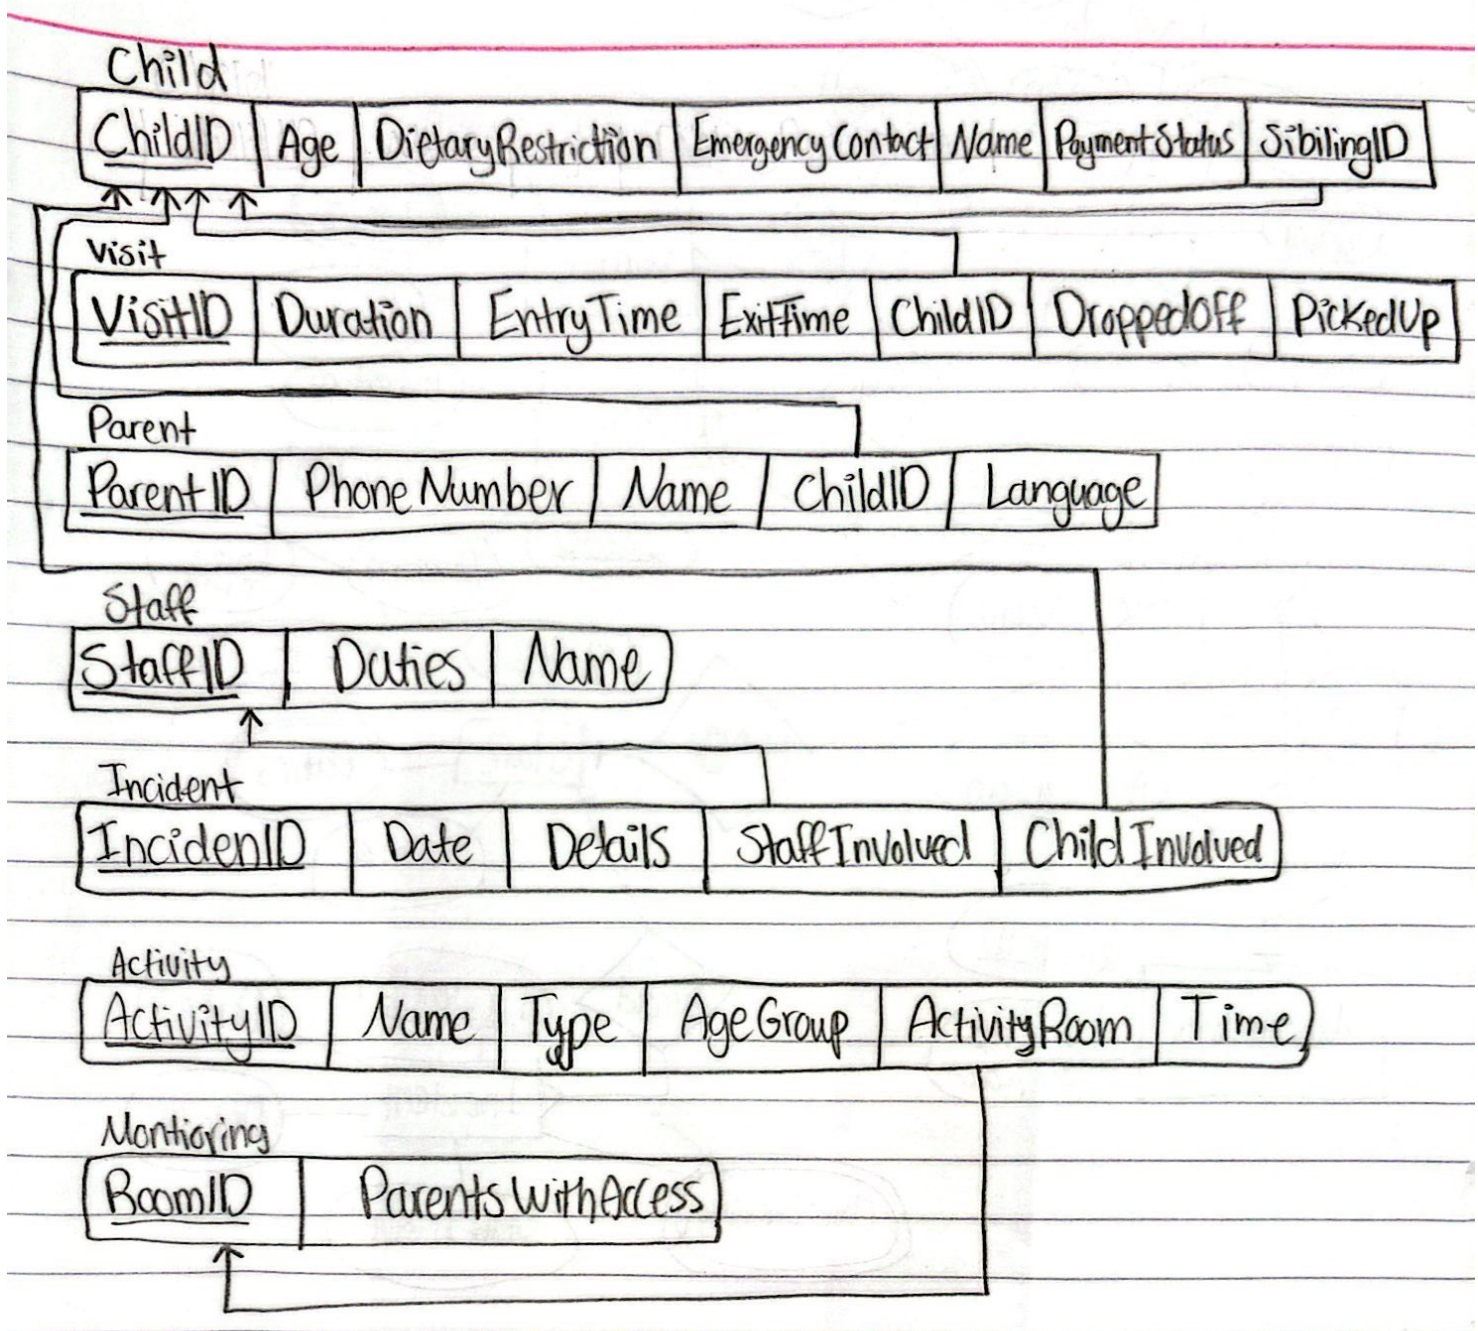 Child
ChildID Age DietaryRestriction EmergencyContact Name PaymentStatus SibilingID
Visit
VisitID Duration EntryTime ExitTime ChildID DroppedOff PickedUp
Parent
ParentID PhoneNumber Name ChildID Language
Staff
StaffID Duties Name
Incident
IncidenID Date Details StaffInvolved ChildInvolved
Activity
ActivityID Name Type AgeGroup ActivityRoom Time
Montioring
RoomID ParentsWithAccess